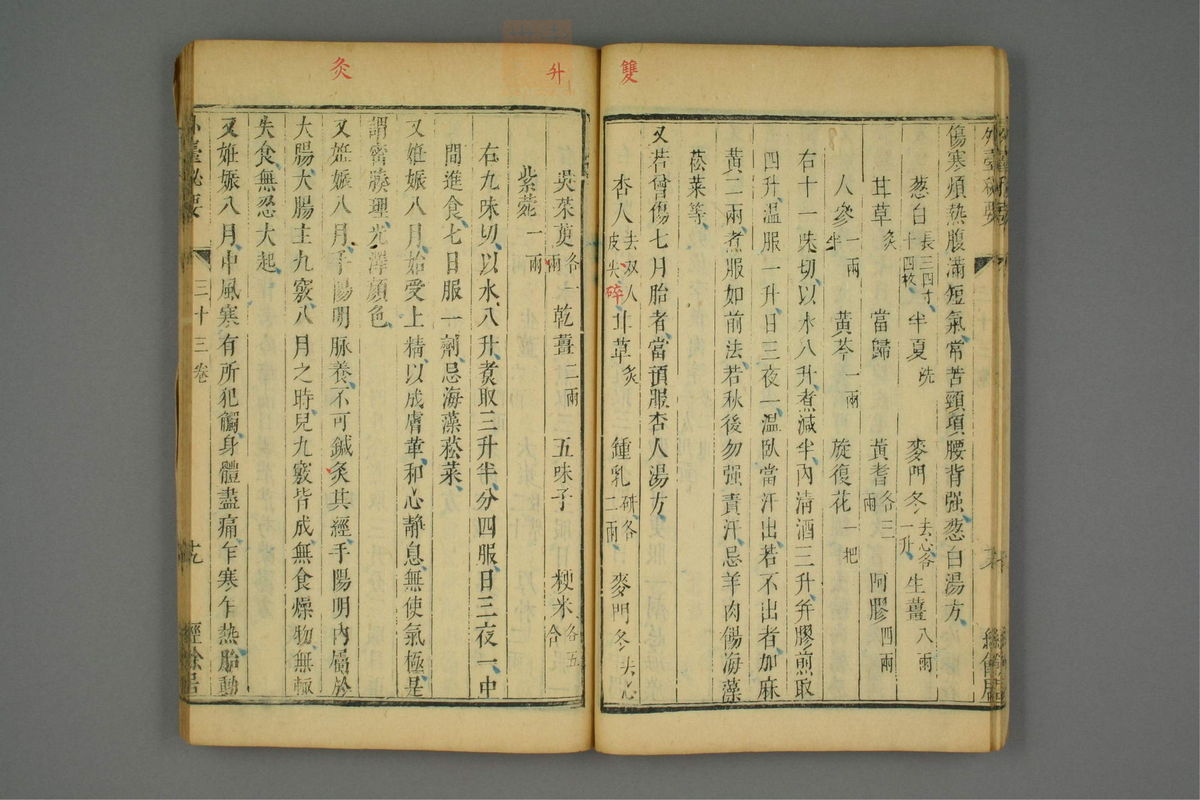 雙
外臺秘要
傷寒煩熱腹滿短氣常苦頸項腰背强葱白湯方
葱白長三四寸十四枚 半夏洗 麥門冬去心各一升 生薑八兩
甘草炙 當歸 黃耆各三兩 阿膠四兩
人參一兩半 黃芩一兩 旋復花一把
右十一味切以水八升煮減半內清酒三升并膠煎取
四升溫服一升日三夜一溫臥當汗出若不出者加麻
黃二兩煮服如前法若秋後勿强責汗忌羊肉餳海藻
菘菜等
又若曾傷七月胎者當預服杏人湯方
杏人去双人皮尖碎 甘草炙 鍾乳研各二兩 麥門冬去心
升
灸
吳茱萸各一兩 乾薑二兩 五味子 粳米各五合
紫菀一兩
右九味切以水八升煑取三升半分四服日三夜一中
間進食七日服一劑忌海藻菘菜
又姙娠八月始受上精以成膚革和心靜息無使氣極是
謂密腠理光澤顏色
又姙娠八月手陽明脉養不可鍼灸其經手陽明內屬於
大腸大腸主九竅八月之時兒九竅皆成無食燥物無輙
失食無忍大起
又姙娠八月中風寒有所犯觸身體盡痛乍寒乍熱胎動
外臺秘要 三十三卷 經餘居